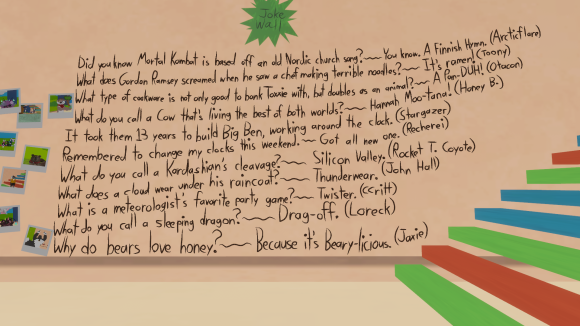 Joke
Wall
Did you know Mortal Kombat is based off an old Nordic church song?~~ You know. A Finnish Hymn. (Arcticflare)
What does Gordon Ramsey screamed when he saw a chef making terrible noodles?~~ It's ramen! (Toony)
What type of cookware is not only good to bonk Toxxie with, but doubles as an animal?~~ A Pan-DUH! (Otacon)
What do you call a Cow that's living the best of both worlds?~~ Hannah Moo-tana! (Honey B.)
It took them 13 years to build Big Ben, working around the clock. (Stargazer)
Remembered to change my clocks this weekend.~~ Got all new one. (Recherei)
What do you call a Kardashian's cleavage?~~ Silicon Valley. (Rocket T. Coyote)
What does a cloud wear under his raincoat?~~ Thunderwear. (John Hall)
What is a meteorologist's favorite party game?~~ Twister. (CCritt)
What do you call a sleeping dragon?~~ Drag-off. (Loreck)
Why do bears love honey?~~ Because it's Beary-licious. (Jaxie)